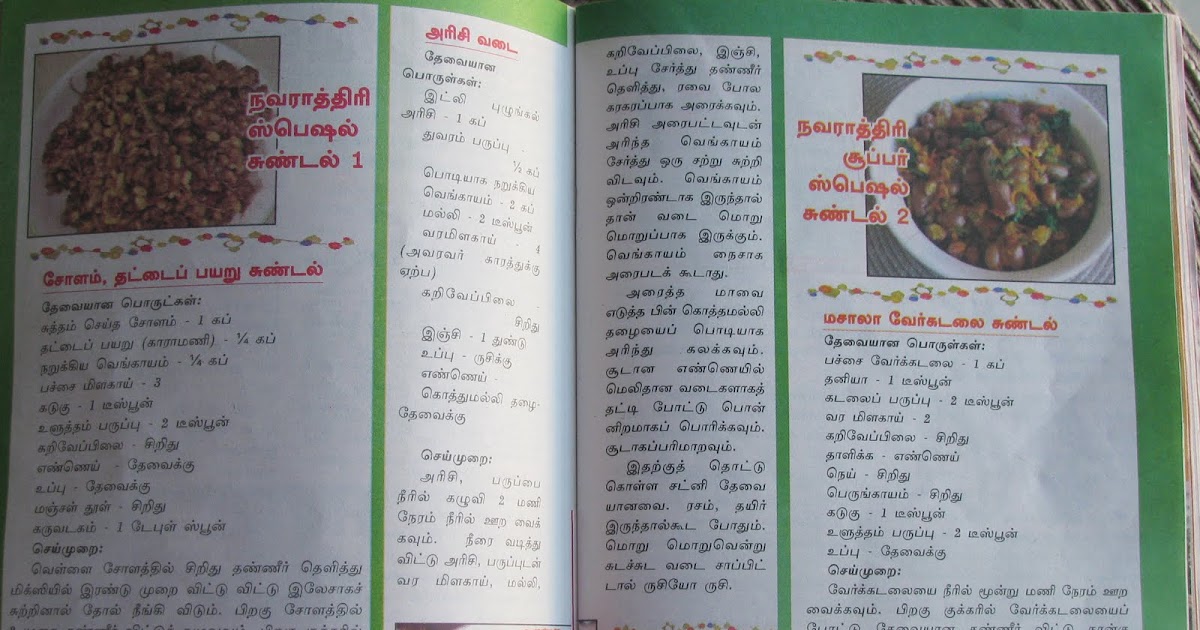 நவராத்திரி
ஸ்பெஷல்
சுண்டல் 1
சோளம், தட்டைப் பயறு சுண்டல்
தேவையான பொருட்கள்:
சுத்தம் செய்த சோளம் - 1 கப்
தட்டைப் பயறு (காராமணி) - ¼ கப்
நறுக்கிய வெங்காயம் - ¼ கப்
பச்சை மிளகாய் - 3
கடுகு - 1 டீஸ்பூன்
உளுத்தம் பருப்பு - 2 டீஸ்பூன்
கறிவேப்பிலை - சிறிது
எண்ணெய் - தேவைக்கு
உப்பு - தேவைக்கு
மஞ்சள் தூள் - சிறிது
கருவடகம் - 1 டேபுள் ஸ்பூன்
செய்முறை:
வெள்ளை சோளத்தில் சிறிது தண்ணீர் தெளித்து
மிக்ஸியில் இரண்டு முறை விட்டு விட்டு இலேசாகச்
சுற்றினால் தோல் நீங்கி விடும். பிறகு சோளத்தில்
அரிசி வடை
தேவையான
பொருள்கள்:
இட்லி புழுங்கல்
அரிசி - 1 கப்
துவரம் பருப்பு -
½ கப்
பொடியாக நறுக்கிய
வெங்காயம் - 2 கப்
மல்லி - 2 டீஸ்பூன்
வரமிளகாய் - 4
(அவரவர் காரத்துக்கு
ஏற்ப)
கறிவேப்பிலை -
சிறிது
இஞ்சி - 1 துண்டு
உப்பு - ருசிக்கு
எண்ணெய் -
கொத்துமல்லி தழை-
தேவைக்கு
செய்முறை:
அரிசி, பருப்பை
நீரில் கழுவி 2 மணி
நேரம் நீரில் ஊற வைக்
கவும். நீரை வடித்து
விட்டு அரிசி, பருப்புடன்
வர மிளகாய், மல்லி,
கறிவேப்பிலை, இஞ்சி,
உப்பு சேர்த்து தண்ணீர்
தெளித்து, ரவை போல
கரகரப்பாக அரைக்கவும்.
அரிசி அரைபட்டவுடன்
அரிந்த வெங்காயம்
சேர்த்து ஒரு சற்று சுற்றி
விடவும். வெங்காயம்
ஒன்றிரண்டாக இருந்தால்
தான் வடை மொறு
மொறுப்பாக இருக்கும்.
வெங்காயம் நைசாக
அரைபடக் கூடாது.
அரைத்த மாவை
எடுத்த பின் கொத்தமல்லி
தழையைப் பொடியாக
அரிந்து கலக்கவும்.
சூடான எண்ணெயில்
மெலிதான வடைகளாகத்
தட்டி போட்டு பொன்
னிறமாகப் பொரிக்கவும்.
சூடாகப்பரிமாறவும்.
இதற்குத் தொட்டு
கொள்ள சட்னி தேவை
யானவை. ரசம், தயிர்
இருந்தால்கூட போதும்.
மொறு மொறுவென்று
சுடச்சுட வடை சாப்பிட்
டால் ருசியோ ருசி.
நவராத்திரி
சூப்பர்
ஸ்பெஷல்
சுண்டல் 2
மசாலா வேர்கடலை சுண்டல்
தேவையான பொருள்கள்:
பச்சை வேர்க்கடலை - 1 கப்
தனியா - 1 டீஸ்பூன்
கடலைப் பருப்பு - 2 டீஸ்பூன்
வர மிளகாய் - 2
கறிவேப்பிலை - சிறிது
தாளிக்க - எண்ணெய்
நெய் - சிறிது
பெருங்காயம் - சிறிது
கடுகு - 1 டீஸ்பூன்
உளுத்தம் பருப்பு - 2 டீஸ்பூன்
உப்பு - தேவைக்கு
செய்முறை:
வேர்க்கடலையை நீரில் மூன்று மணி நேரம் ஊற
வைக்கவும். பிறகு குக்கரில் வேர்க்கடலையைப்